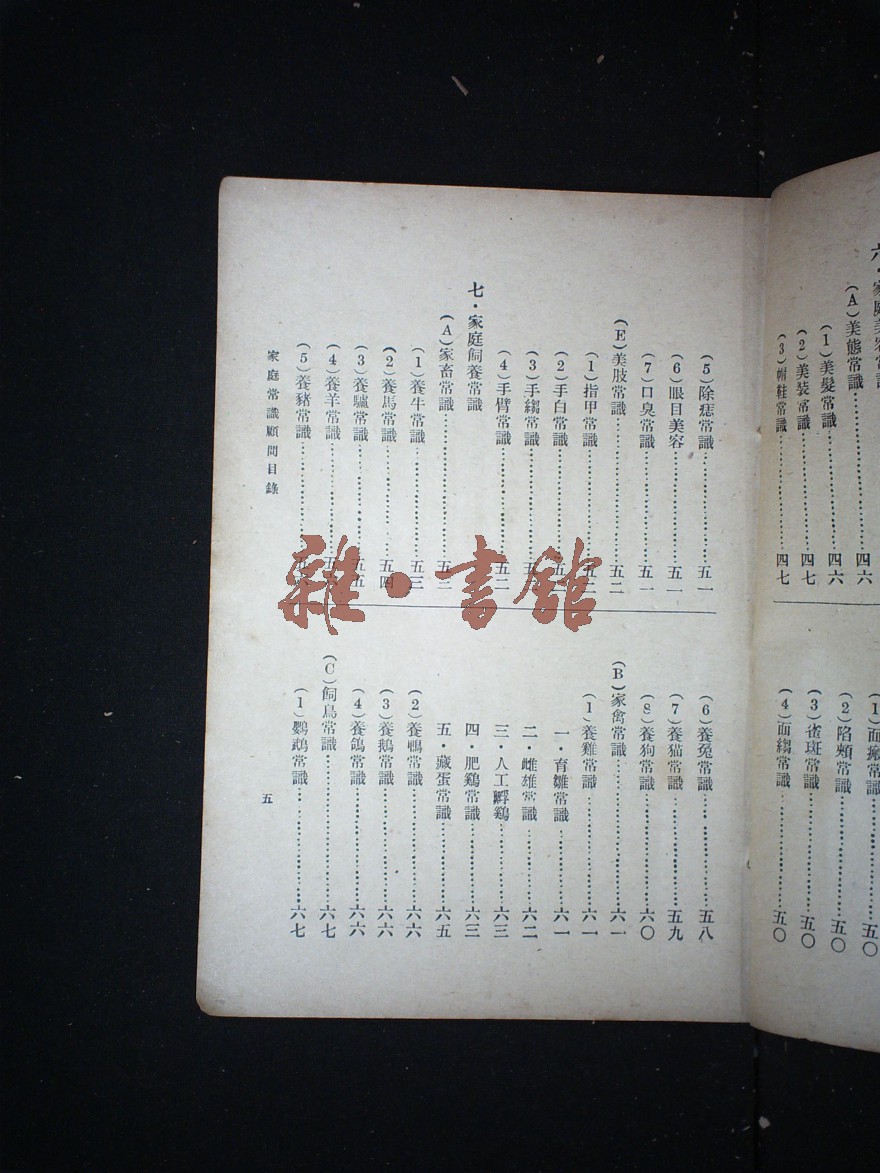 (A)美態常識
(1)美髮常識……四六
(2)美裝常識……四七
(3)帽鞋常識……四七
(2)陷頰常識……五〇
(3)雀斑常識……五〇
(4)面縐常識……五〇
(5)除痣常識……五一
(6)眼目美容……五一
(7)口臭常識……五一
(E)美肢常識……五二
(1)指甲常識……五二
(2)手白常識
(3)手縐常識
(4)手臂常識……五二
七・家庭飼養常識
(A)家畜常識……五三
(1)養牛常識……五三
(2)養馬常識……五四
(3)養驢常識……五五
(4)養羊常識
(5)養豬常識
(6)養兔常識……五八
(7)養猫常識……五九
(8)養狗常識……六〇
(B)家禽常識……六一
(1)養雞常識……六一
一・育雛常識……六一
二・雌雄常識……六二
三・人工孵鷄……六三
四・肥鷄常識……六三
五・藏蛋常識……六五
(2)養鴨常識……六六
(3)養鵝常識……六六
(4)養鴿常識……六六
(C)飼鳥常識……六七
(1)鸚鵡常識……六七
家庭常識顧問目錄
五
雜・書館